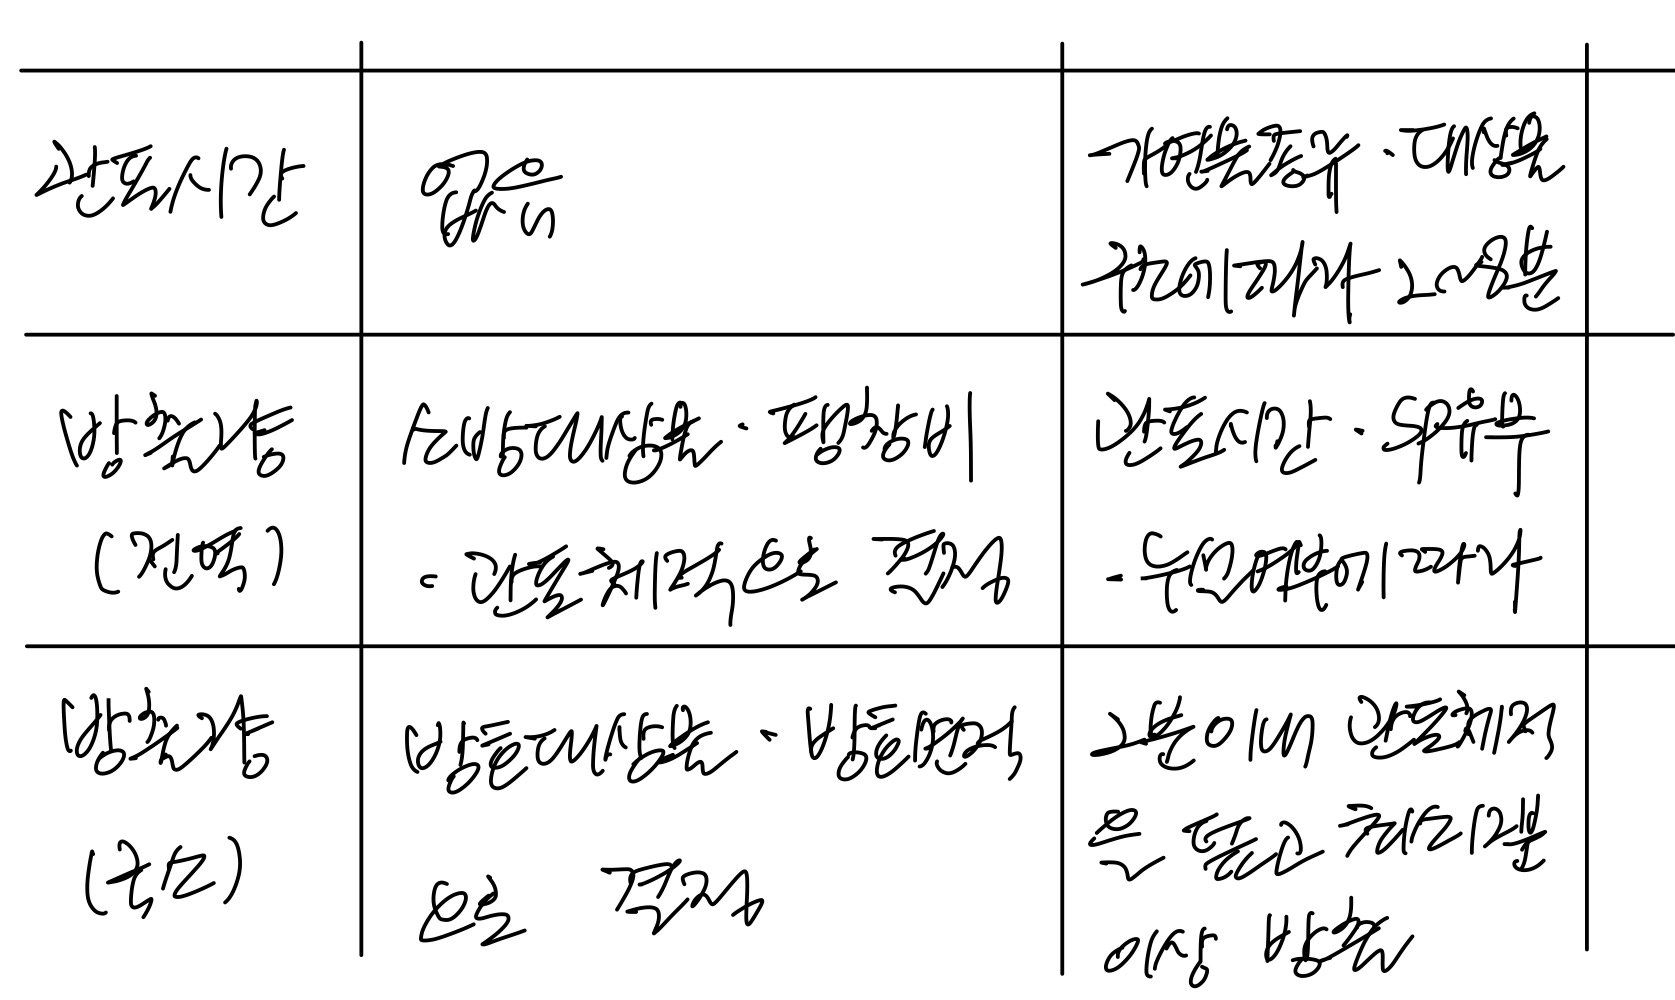 관포시간
없음
가연물종류 · 대상물
구조에 따라 2~8분
방출량
(전역)
소방대상물 · 팽창비
· 관포체적으로 결정
관포시간 · SP유무
· 구조여부에 따라
방출량
(국소)
방호대상물 · 방호면적
으로 결정
2분이내 관포체적
은 덮고 최소 12분
이상 방출